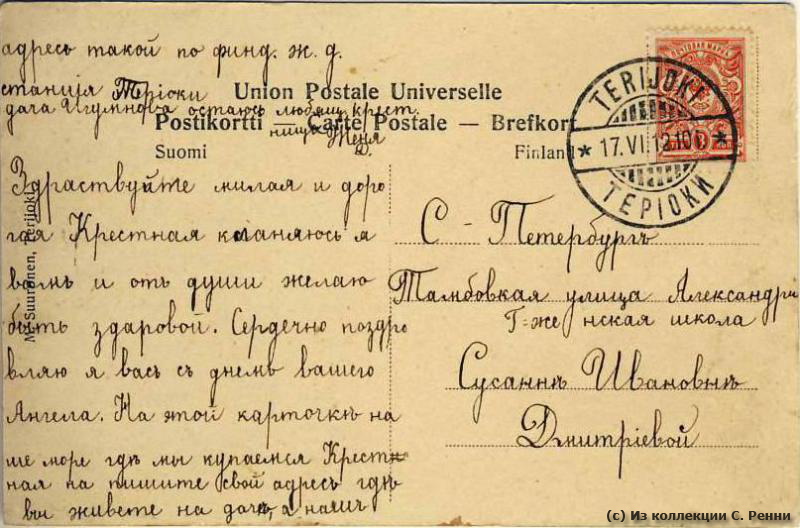 адресъ такой по финд. ж. д.
станція Теріоки
дача Игумнова остаюсь любящ. крест
ница Женя
Д.
Union Postale Universelle
Postikortti — Carte Postale — Brefkort
Suomi Finland
M. Suuronen, Terijoki
ПОЧТОВАЯ МАРКА
TERIJOKI
17.VI.12.10
ТЕРІОКИ
Здраствуйте милая и доро
гая Крестная кланяюсь я
вамъ и отъ души желаю
быть здаровой. Сердечно поздро
вляю я васъ съ днемъ вашего
Ангела. На этой карточкѣ на
ше море гдѣ мы купаемся Крест
ная на пишите свой адресъ гдѣ
вы живете на дачѣ, а нашъ
С-Петербургъ
Тамбовкая улица Александри
Г=же нская школа
Сусаннѣ Ивановнѣ
Дмитріевой
(c) Из коллекции С. Ренни